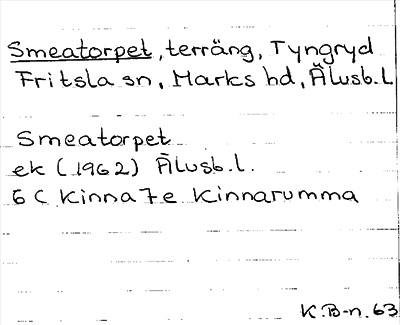 Smeatorpet, terräng, Tyngryd
Fritsla sn, Marks hd, Älvsb. l.
Smeatorpet
ek (1962) Älvsb. l.
6 C Kinna 7e Kinnarumma
K.B-n. 63